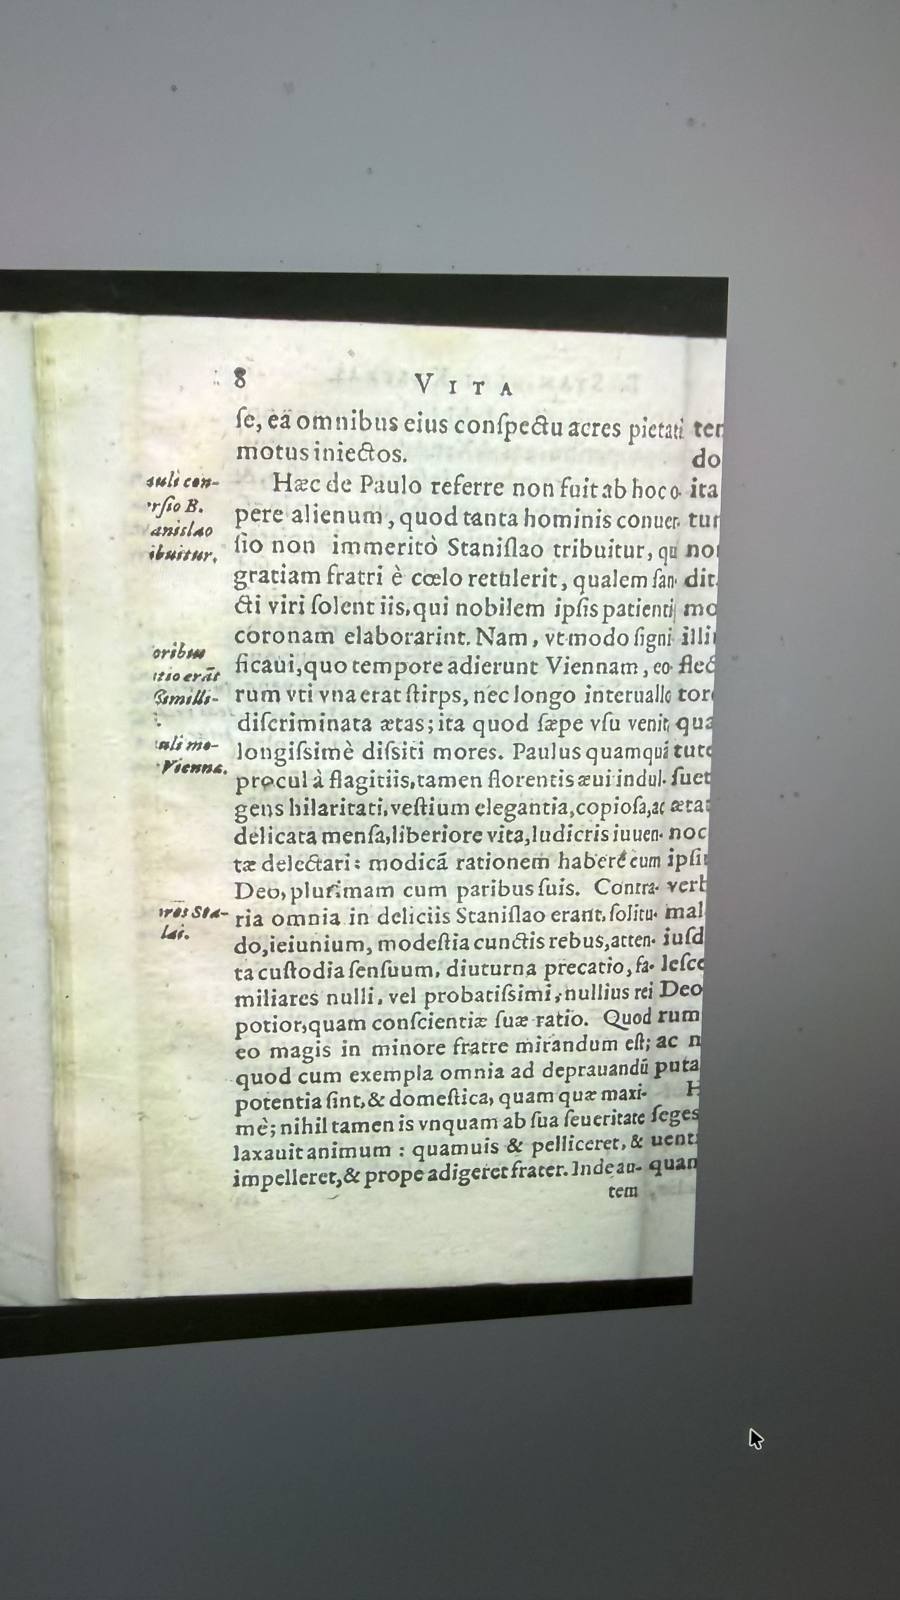 8 VITA
ſe, eā omnibus eius conſpectu acres pietati
motus iniectos.
Hæc de Paulo referre non fuit ab hoc o-
pere alienum, quod tanta hominis conuer-
ſio non immeritò Staniſlao tribuitur, qu
gratiam fratri è cœlo retulerit, qualem ſan-
cti viri ſolent iis, qui nobilem ipſis patienti
coronam elaborarint. Nam, vt modo ſigni-
ficaui, quo tempore adierunt Viennam, eo-
rum vti vna erat ſtirps, nec longo interuallo
diſcriminata ætas; ita quod ſæpe vſu venit,
longiſsimè diſsiti mores. Paulus quamquā
procul à flagitiis, tamen florentis æui indul-
gens hilaritati, veſtium elegantia, copioſa, ac
delicata menſa, liberiore vita, ludicris iuuen-
tæ delectari: modicā rationem habere cum
Deo, plurimam cum paribus ſuis. Contra-
ria omnia in deliciis Staniſlao erant, ſolitu-
do, ieiunium, modeſtia cunctis rebus, atten-
ta cuſtodia ſenſuum, diuturna precatio, fa-
miliares nulli, vel probatiſsimi, nullius rei
potior, quam conſcientiæ ſuæ ratio. Quod
eo magis in minore fratre mirandum eſt;
quod cum exempla omnia ad deprauandū
potentia ſint, & domeſtica, quam quæ maxi-
mè; nihil tamen is vnquam ab ſua ſeueritate
laxauit animum : quamuis & pelliceret, &
impelleret, & prope adigeret frater. Inde au-
tem
auli con-
rſio B.
anislao
ibuitur.
oribus
itio erāt
ſsimilli-
auli mo-
Vienna.
ores Sta-
lai.
ter
do
ita
tur
no
dit
mo
illi
flec
tor
qua
tute
ſuet
æta
noc
ipſi
verb
mal
iuſd
leſce
Deo
rum
ac n
puta
H
ſeges
uent
quan